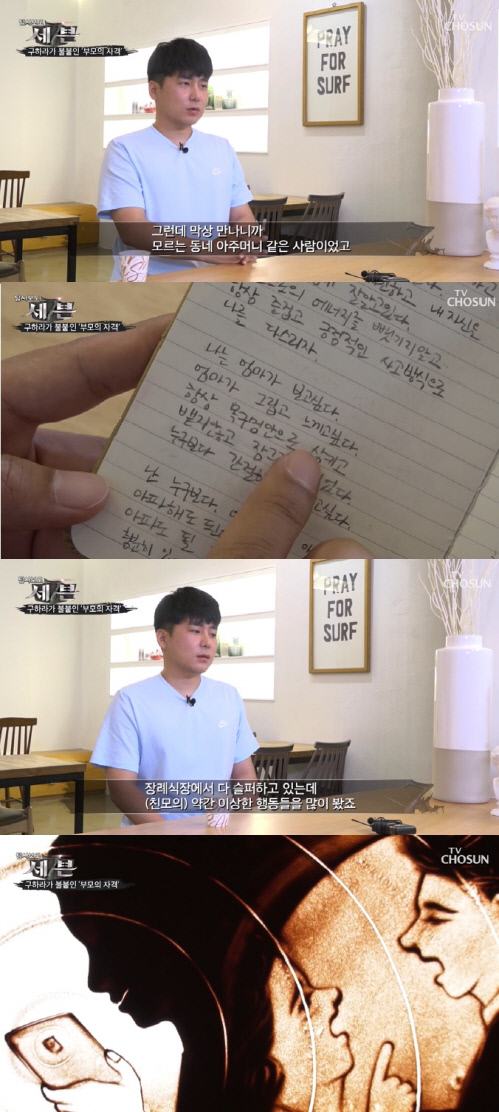 탐사보도
세븐
구하라가 불붙인 '부모의 자격'
TV
CHOSUN
PRAY
FOR
SURF
그런데 막상 만나니까
모르는 동네 아주머니 같은 사람이었고
탐사보도
세븐
구하라가 불붙인 '부모의 자격'
TV
CHOSUN
내 자신은
에너지를 뺏기지않고
항상 즐겁고 긍정적인 사고방식으로
나를 다스리자.
나는 엄마가 보고싶다
엄마가 그립고 느끼고싶다.
항상 목구멍안으로 삼키고
뱉지않고
누구보다
싶다.
난 누구보다.
아파해도
아파도 될
충분히
탐사보도
세븐
구하라가 불붙인 '부모의 자격'
TV
CHOSUN
PRAY
FOR
SURF
장례식장에서 다 슬퍼하고 있는데
(친모의) 약간 이상한 행동들을 많이 봤죠
탐사보도
세븐
구하라가 불붙인 '부모의 자격'
TV
CHOSUN